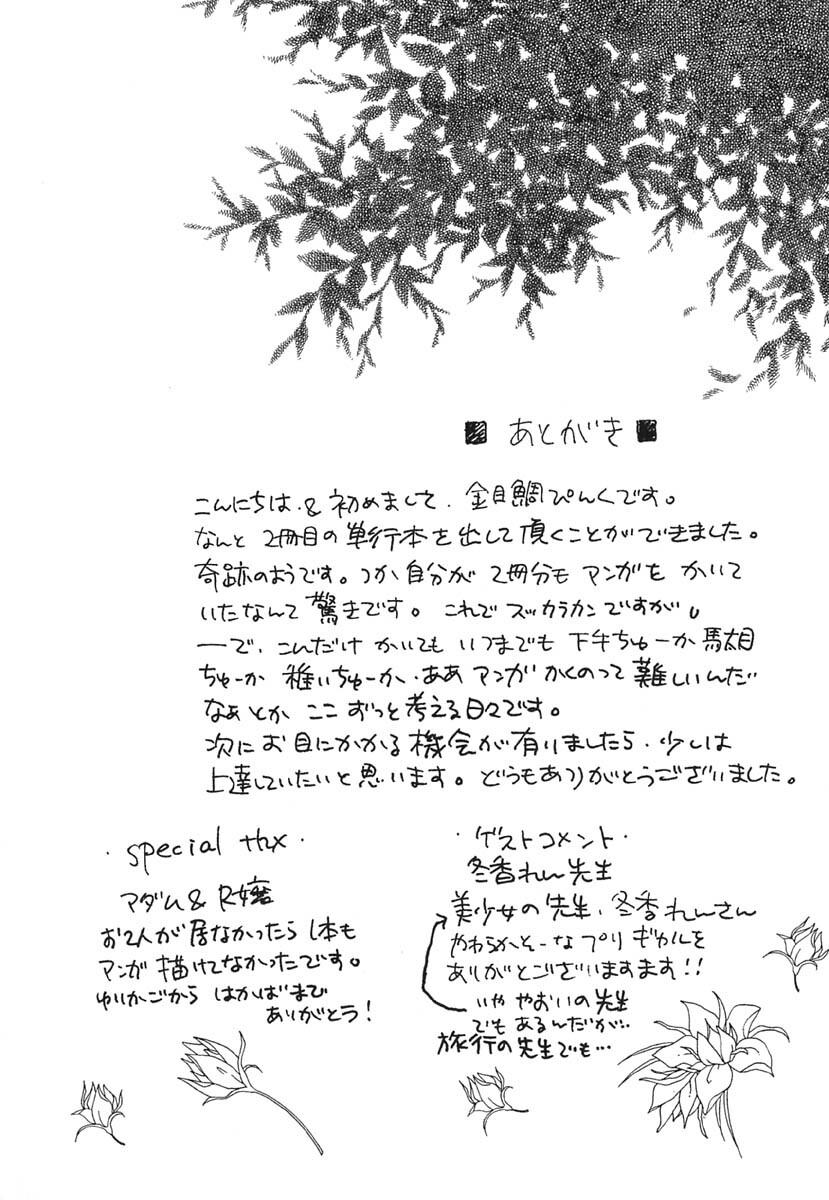 ■ あとがき ■
こんにちは.&初めまして.金目鯛ぴんくです。
なんと 2冊目の単行本を出して頂くことができました。
奇跡のようです。つか自分が 2冊分も マンガを かいて
いたなんて驚きです。これでスッカラカンですが。
ーで、こんだけ かいても いつまでも 下手ちゅーか 駄目
ちゅーか 稚いちゅーか、ああ マンガ かくのって 難しいんだ
なぁとか ここ ずっと考える日々です。
次に お目にかかる機会が有りましたら、少しは
上達していたいと思います。どうもありがとうございました。
・special thx・
マダム & R嬢
お2人が居なかったら 1本も
マンガ 描けてなかったです。
ゆりかごから はかばまで
ありがとう!
・ゲストコメント・
冬香れん先生
美少女の先生、冬香れんさん
やわらかそーなプリギャルを
ありがとございますます!!
いや やおいの先生
でも あるんだが…
旅行の先生でも…